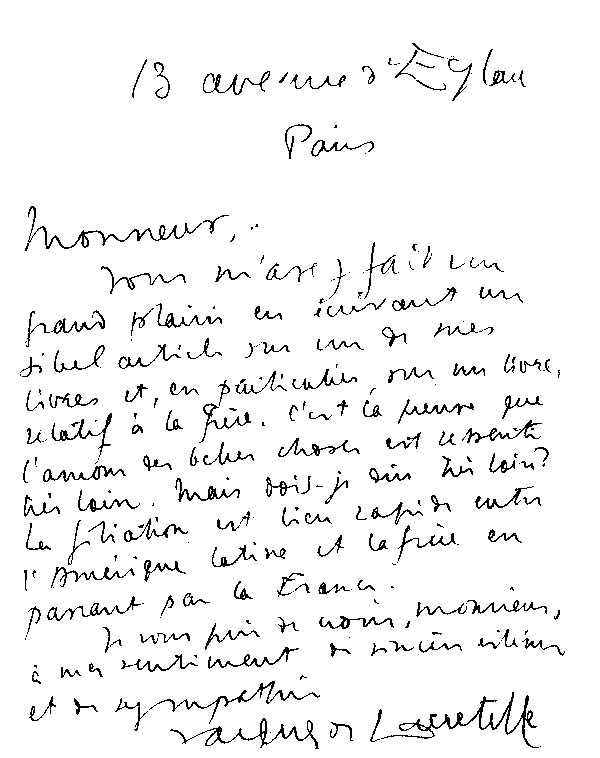 13 avenue d'Eylau
Paris
Monsieur,
Vous m'avez fait un
grand plaisir en écrivant un
si bel article sur un de mes
livres et, en particulier, sur un livre,
relatif à la Grèce. C'est la preuve que
l'amour des belles choses est ressenti
très loin. Mais dois-je dire très loin?
La filiation est bien rapide entre
l'Amérique latine et la Grèce en
passant par la France.
Je vous prie de croire, monsieur,
à mes sentiments de sincère estime
et de sympathie
Jacques de Lacretelle